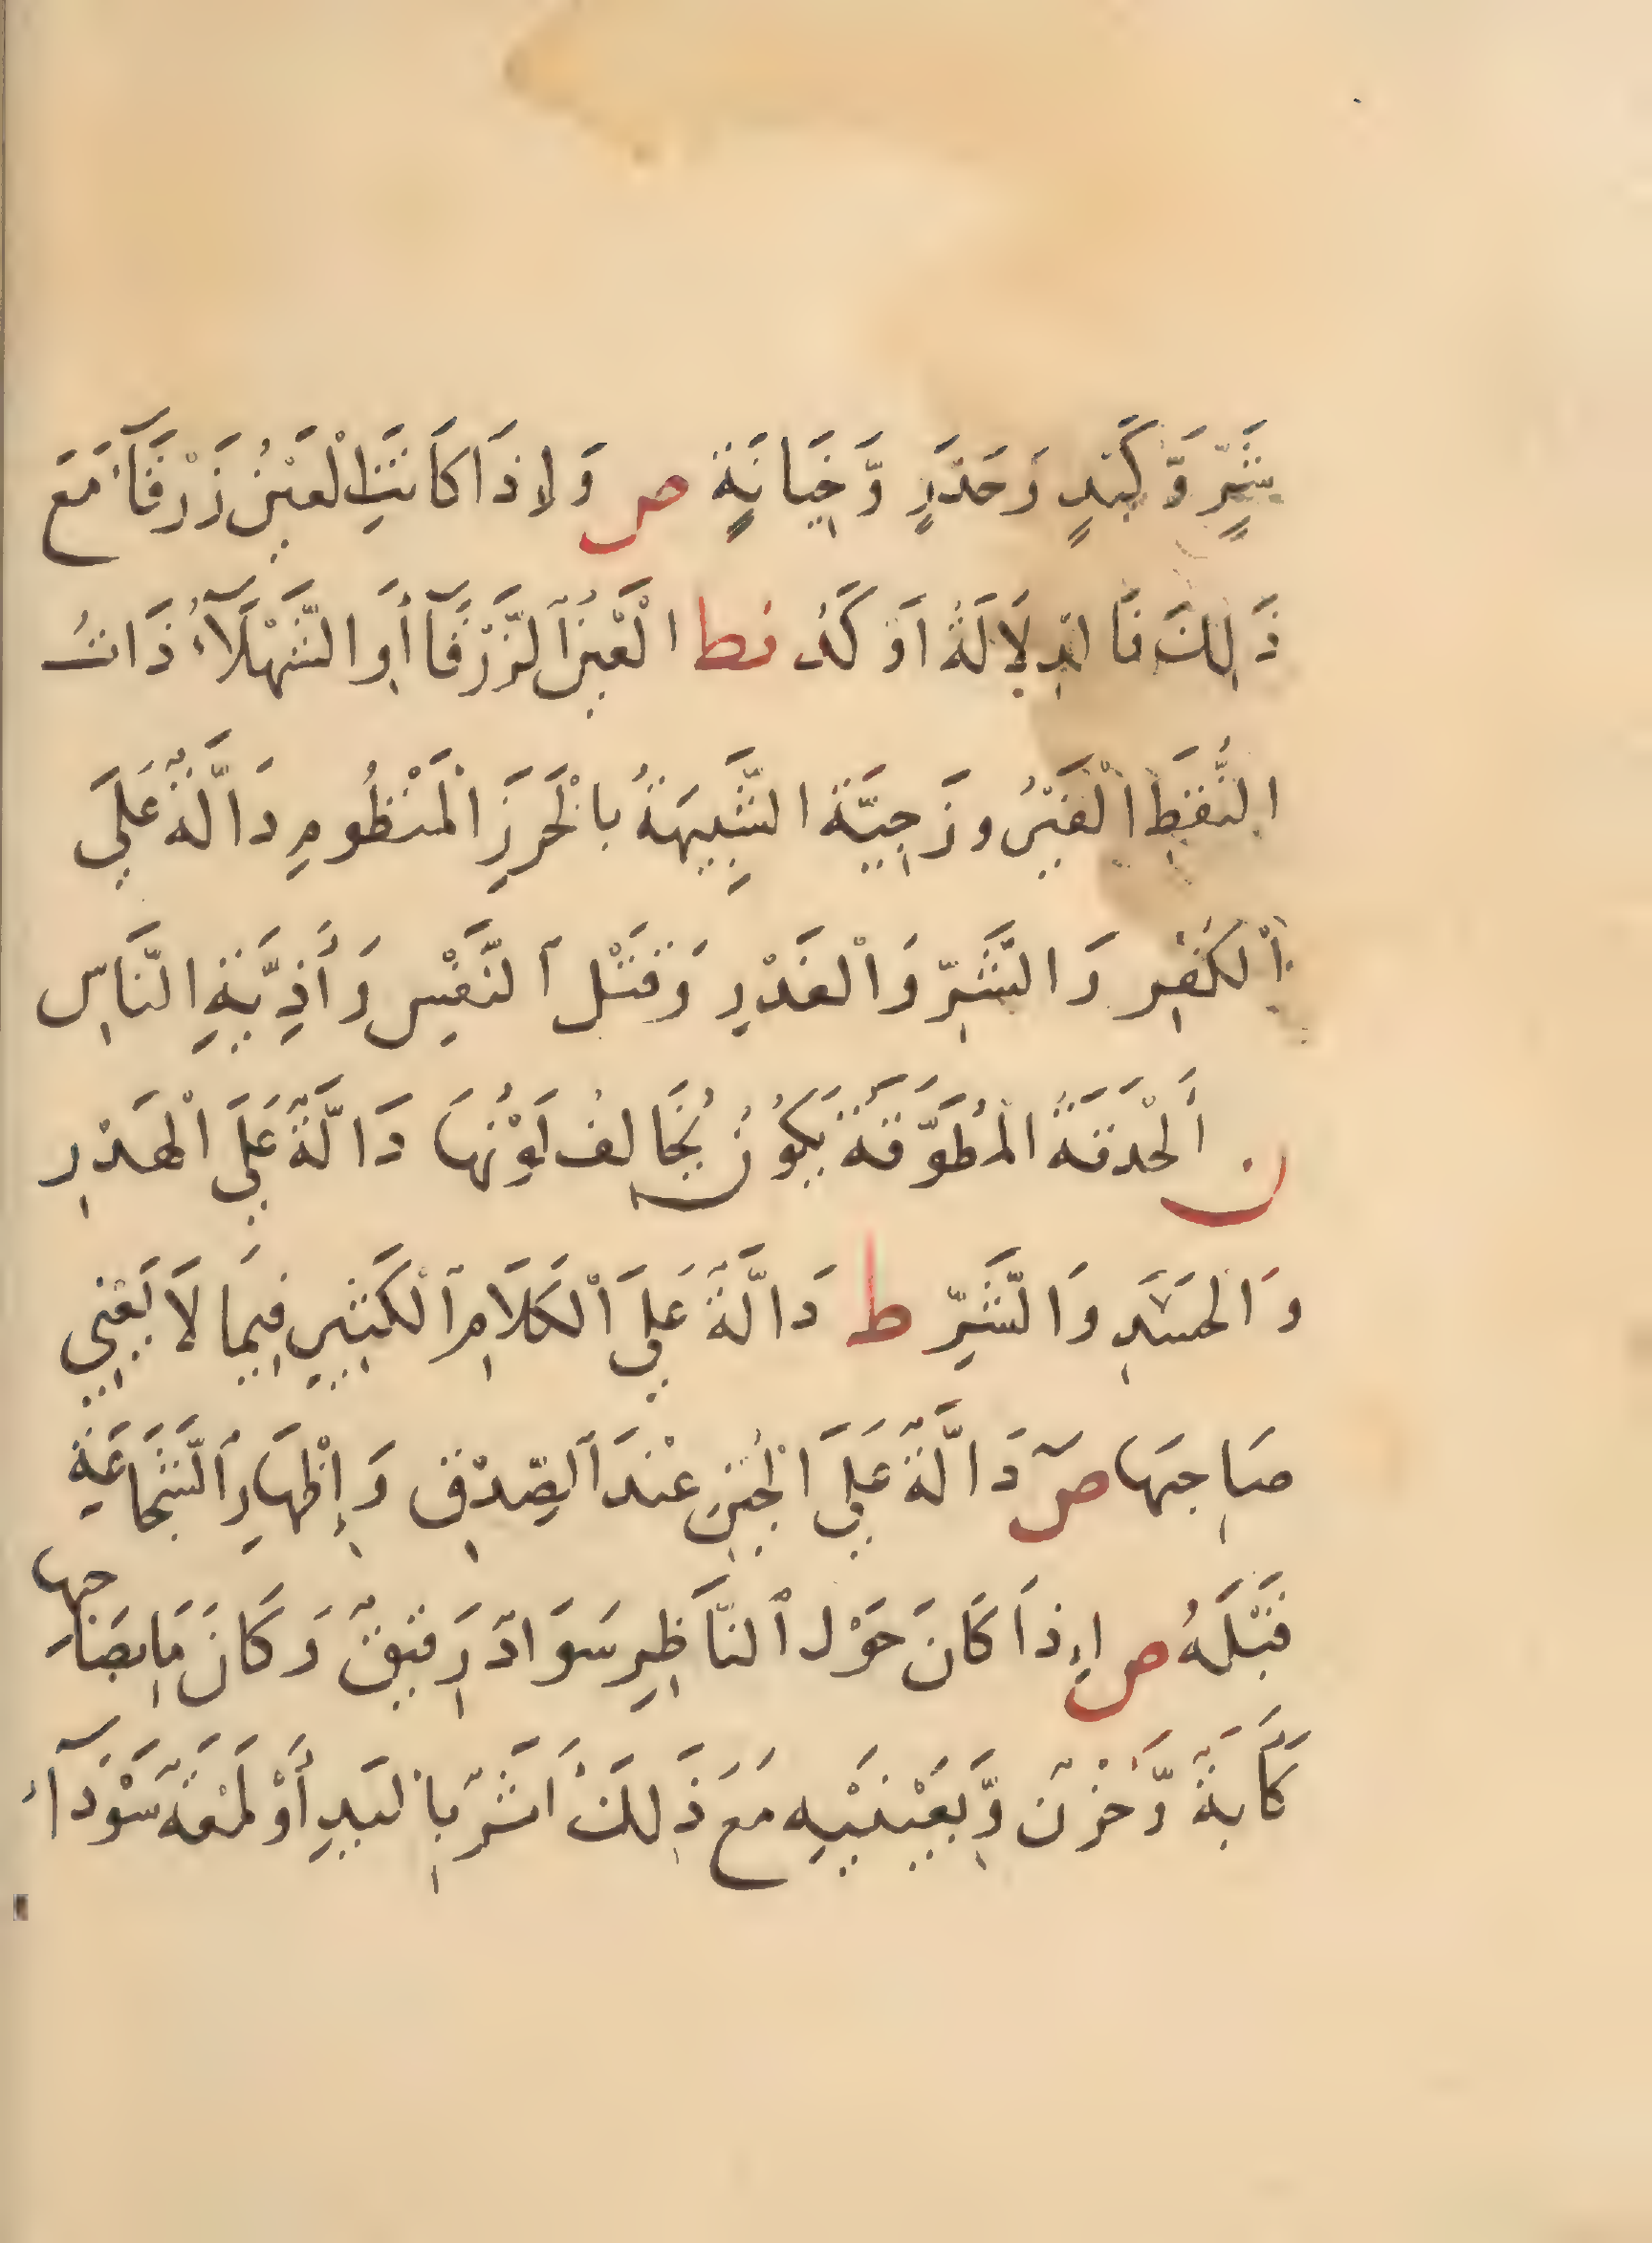 شَرٍّ وَّكَيْدٍ وَحَدَرٍ وَّخِيَانَةٍ ص وَلإِذَا كَانَتِ الْعَيْنُ زَرْقَآءَ مَعَ
ذَلِكَ فَالدِلَالَةُ اَوْكَدُ نط الْعَيْنُ اَلزَّرْقَآ أَوِ الشَّهْلَآءُ ذَاتُ
النُّقَطِ الْغَيْرُ وزَجِيَّة الشَّبِيهَةُ بالْخَرَزِ الْمَنْظُومِ دَالَّةٌ عَلَي
اَلْكُفْرِ وَالشَّرِّ وَالْغَدْرِ وَقَتْل اَلنَّفْسِ وَأَذِيَّةِ النَّاسِ
ن أَلْحَدَقَةُ الْمُطَوَّقَةُ يَكُونُ يُخَالِفُ لَوْنُهَا دَالَّةٌ عَلَي الْهَدْرِ
وَالحسَدِ وَالشَّرِّ ط دَالَّةٌ عَلَي اَلْكَلَامِ اَلْكَثِيرِ فِيمَا لَا يَعْنِي
صَاحِبَهَا ص دَالَّةٌ عَلَي الْجُبْنِ عِنْدَ اَلصِّدْقِ وَإِظْهَارِ اَلشَّجَاعَةِ
قَبْلَهُ ص إِذَا كَانَ حَوْلَ اَلنَّاظِرِ سَوَادٌ رَقِيقٌ وَكَانَ مَا بِصَاحبها
كَآبَةٌ وَّحُزْنٌ وَّبِعَيْنَيْهِ مَعَ ذَلِكَ اَثَرٌ بِالْيَدِ أَوْ لَمْعَةٌ سَوْدَآءُ